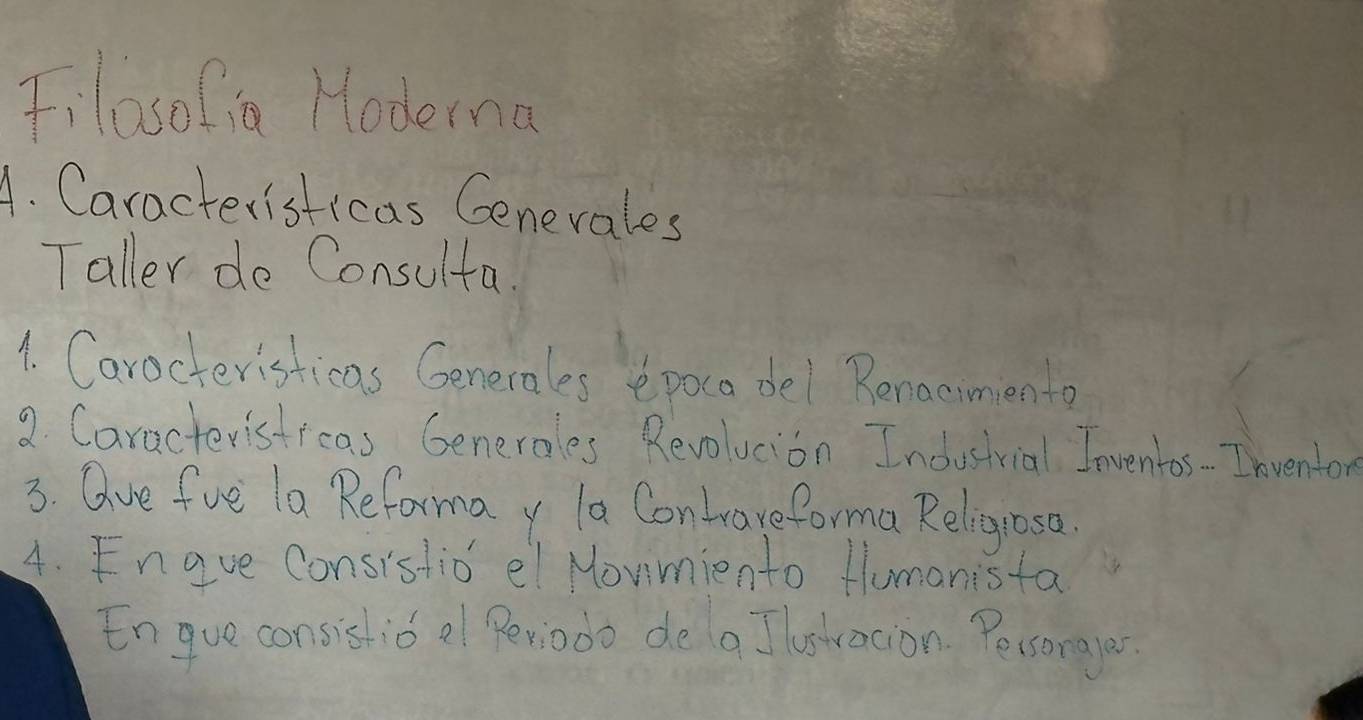 Filosofía Moderna
A. Características Generales
Taller de Consulta.
1. Características Generales época del Renacimiento
2. Características Generales Revolución Industrial Inventos... Inventore
3. Que fue la Reforma y la Contrareforma Religiosa.
4. En que Consistió el Movimiento Humanista
En que consistió el Periodo de la Ilustración. Personajes.